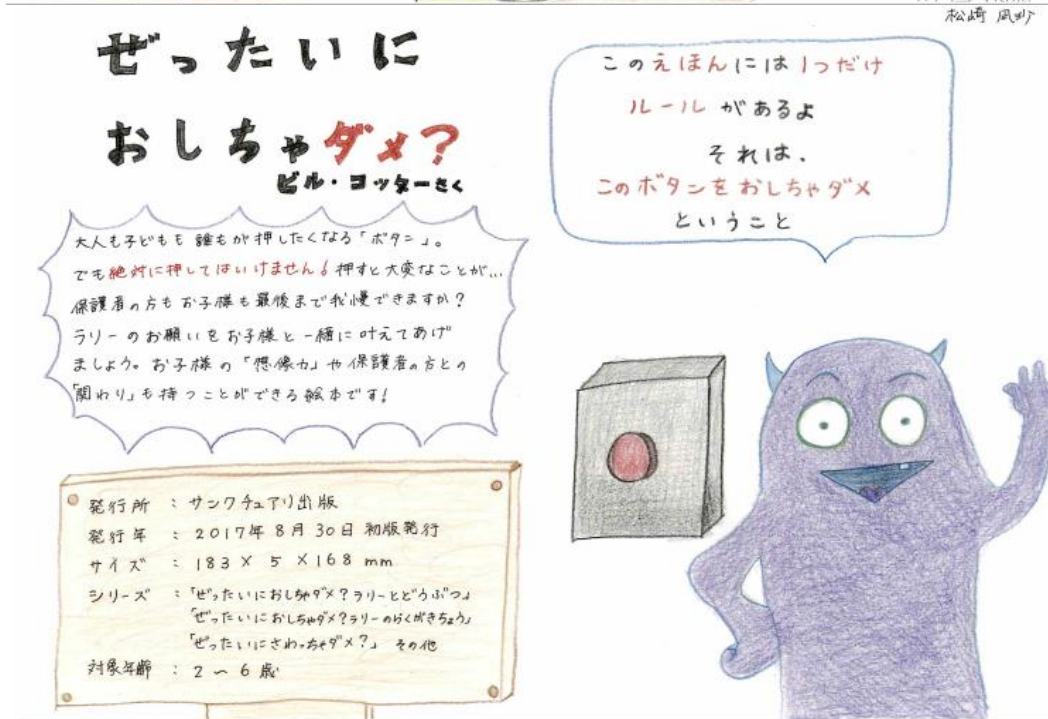 松崎
ぜったいに
おしちゃダメ?
ビル・コッターさく
このえほんには1つだけ
ルールがあるよ
それは、
このボタンをおしちゃダメ
ということ
大人も子どもも誰もが押したくなる「ボタン」。
でも絶対に押してはいけません!押すと大変なことが...
保護者の方もお子様も最後まで我慢できますか?
ラリーのお願いをお子様と一緒に叶えてあげ
ましょう。お子様の「想像力」や保護者の方との
「関わり」も持つことができる絵本です!
発行所 : サンクチュアリ出版
発行年 : 2017年8月30日 初版発行
サイズ : 183×5×168mm
シリーズ : 「ぜったいにおしちゃダメ?ラリーとどうぶつ」
「ぜったいにおしちゃダメ?ラリーのらくがきちょう」
「ぜったいにさわっちゃダメ?」 その他
対象年齢 : 2〜6歳